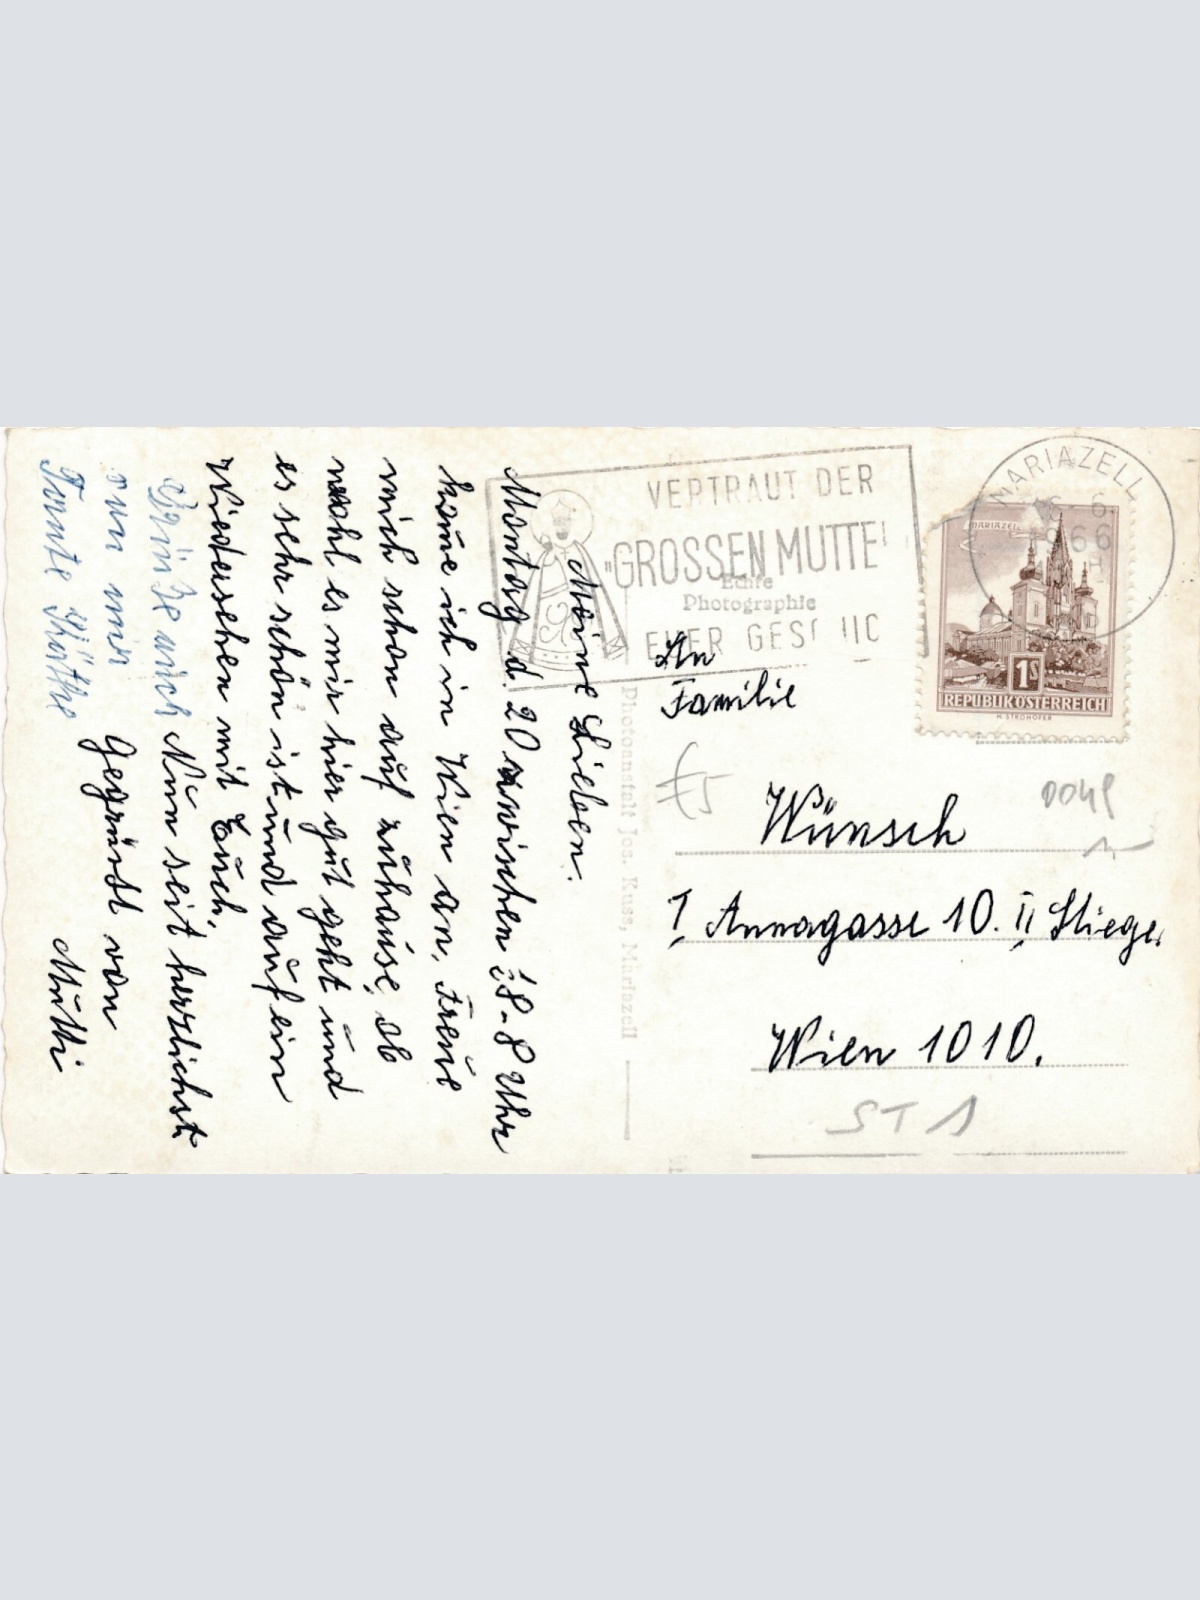 Meine Lieben.
Montag d. 20 zwischen 1/8-8 Uhr
kome ich in Wien an, Freue
mich schon auf zuhause, ob
wohl es mir hier gut geht und
es sehr schön ist und auf ein
Wiedersehen mit Euch.
Nun seit herzlichst
Gegrüsst von
Mutti
Grüße auch
von mir
Tante Käthe
VERTRAUT DER
"GROSSEN MUTTE
EUER GES
Echte
Photographie
Photoanstalt Jos. Kuss, Mariazell
MARIAZELL
6.
66
MARIAZELL
1S
REPUBLIK ÖSTERREICH
H. STROHOFER
An
Familie
€5
0049
Wünsch
I Annagasse 10. II Stiege.
Wien 1010.
ST 1